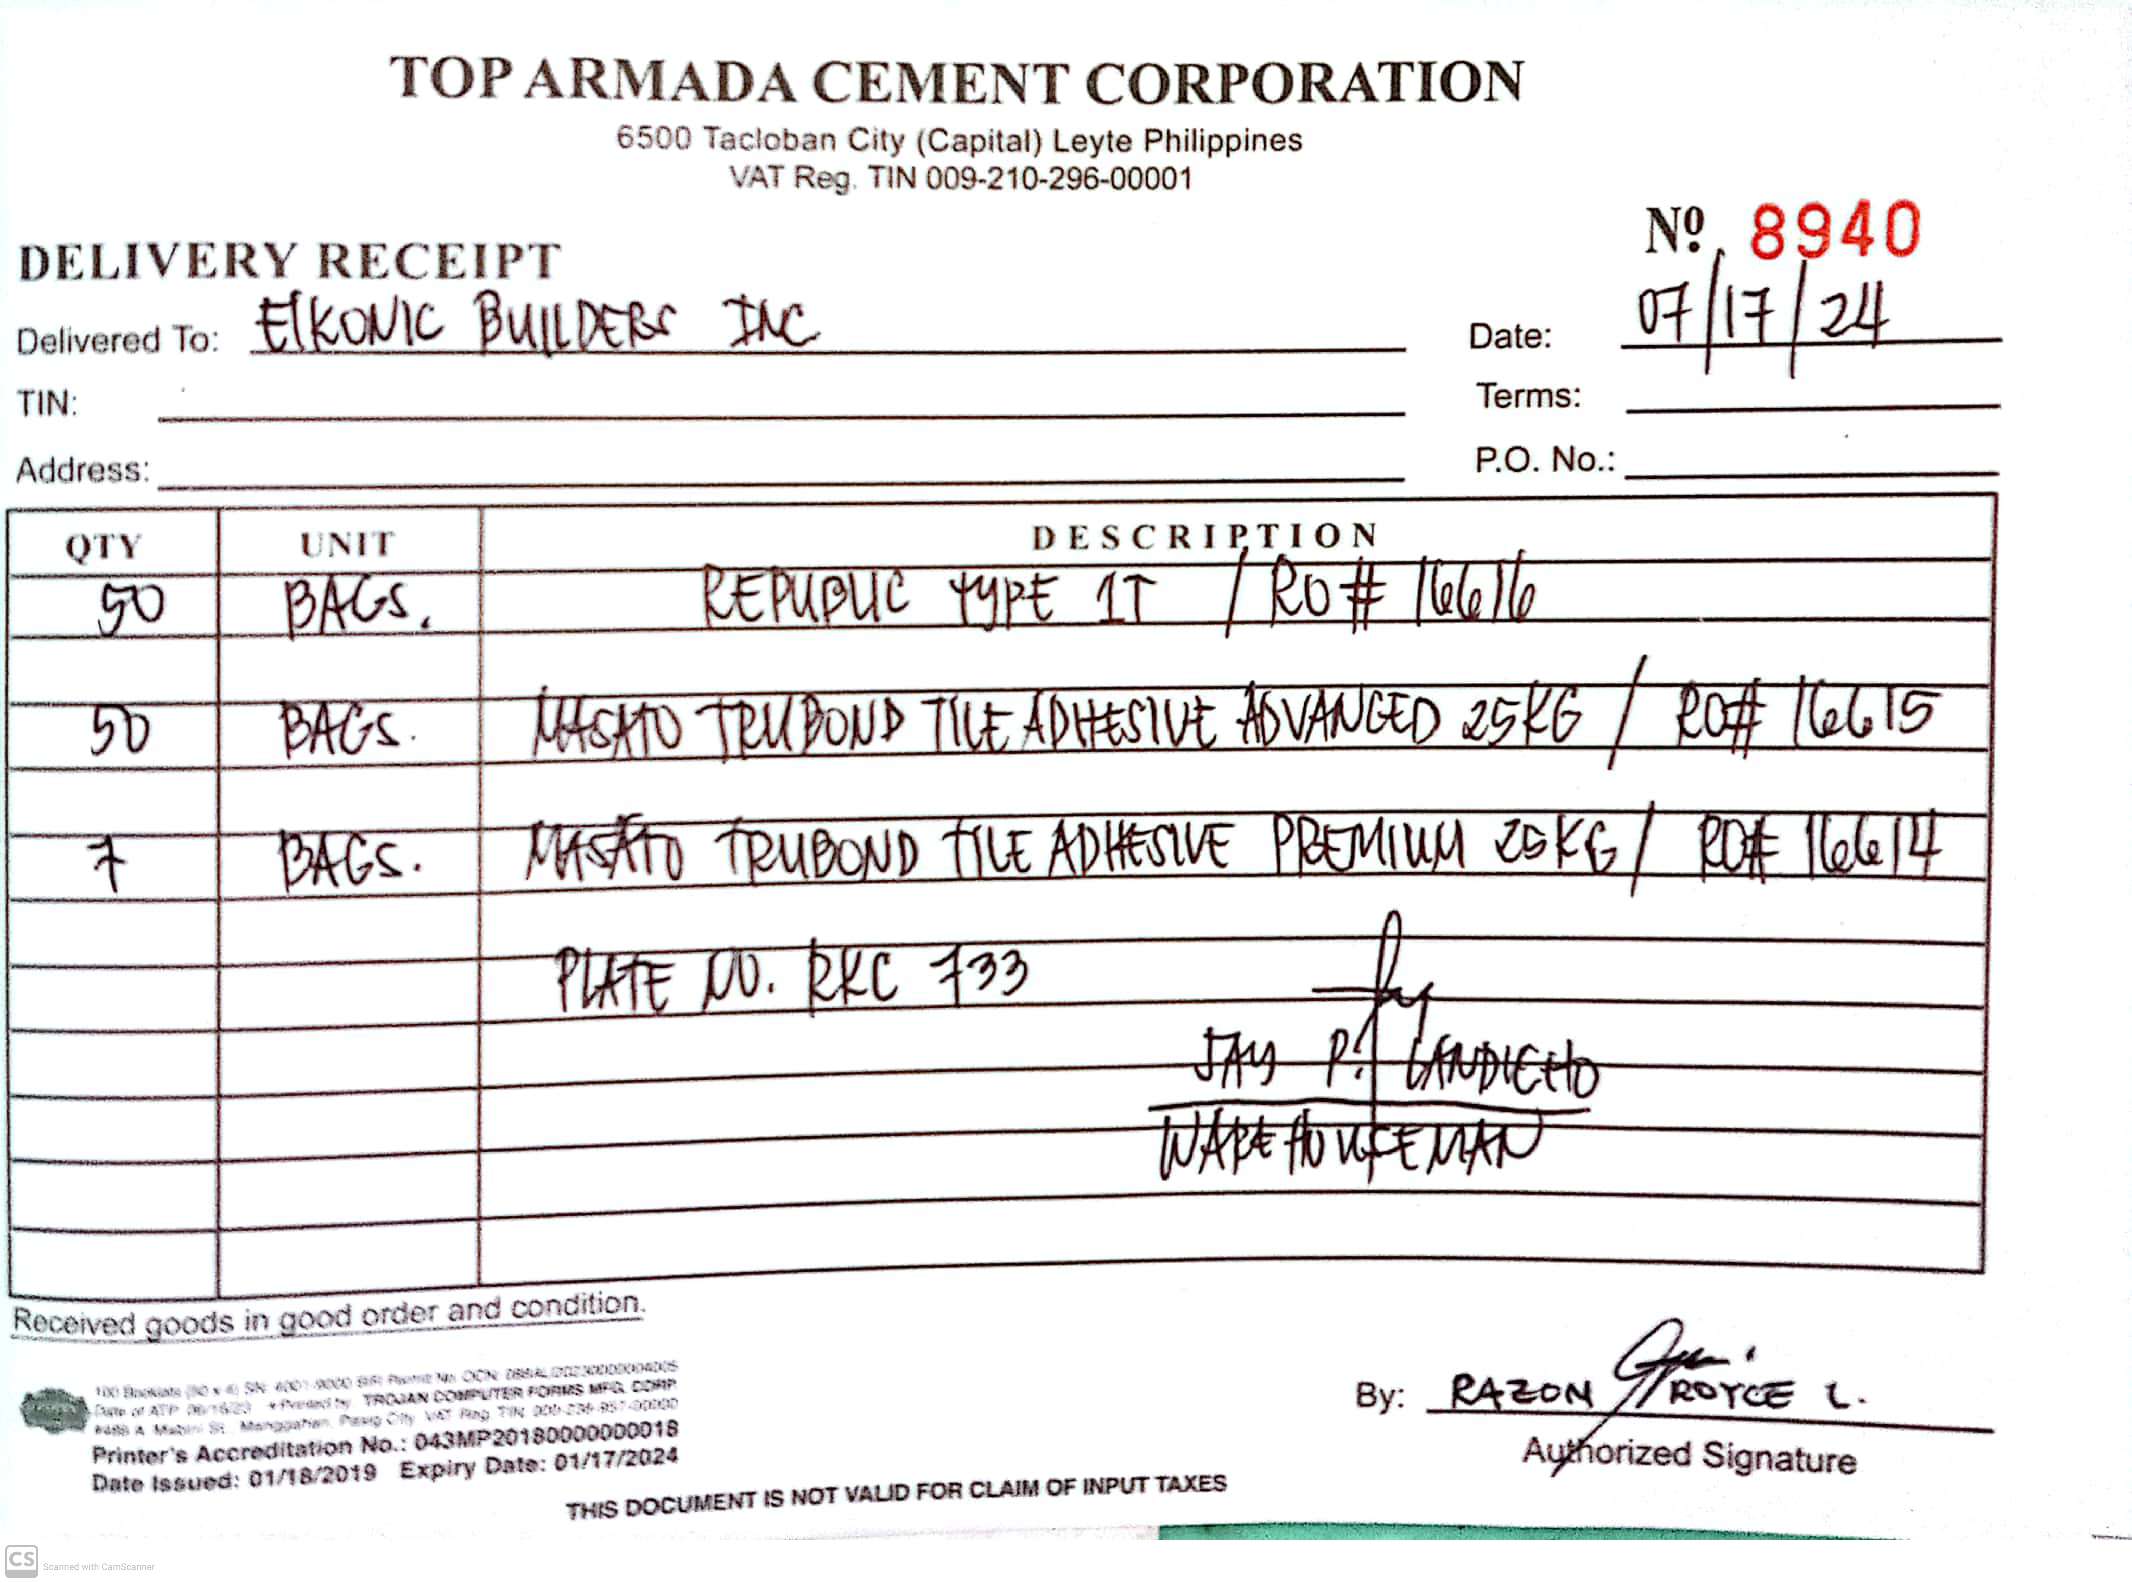 TOP ARMADA CEMENT CORPORATION
6500 Tacloban City (Capital) Leyte Philippines
VAT Reg. TIN 009-210-296-00001
Nº. 8940
DELIVERY RECEIPT
Delivered To: ElKONIC BUILDERS INC
Date: 07/17/24
TIN:
Terms:
Address:
P.O. No.:
QTY UNIT DESCRIPTION
50 BAGS. REPUBLIC TYPE 1T / RO# 16616
50 BAGS. MASATO TRUBOND TILE ADHESIVE ADVANCED 25KG / RO# 16615
7 BAGS. MASATO TRUBOND TILE ADHESIVE PREMIUM 25KG / RO# 16614
PLATE NO. RKC 733
JAY P. LANDICHO
WAREHOUSEMAN
Received goods in good order and condition.
100 Booklets (50 x 4) SN: 4001-9000 BIR Permit No. OCN:
Date of ATP: 06/16/23 Printed by: TROJAN COMPUTER FORMS MFG. CORP.
Mabini St., Manggahan, Pasig City VAT Reg. TIN:
Printer's Accreditation No.: 043MP20180000000018
Date Issued: 01/18/2019 Expiry Date: 01/17/2024
By: RAZON ROYCE L.
Authorized Signature
THIS DOCUMENT IS NOT VALID FOR CLAIM OF INPUT TAXES
CS Scanned with CamScanner